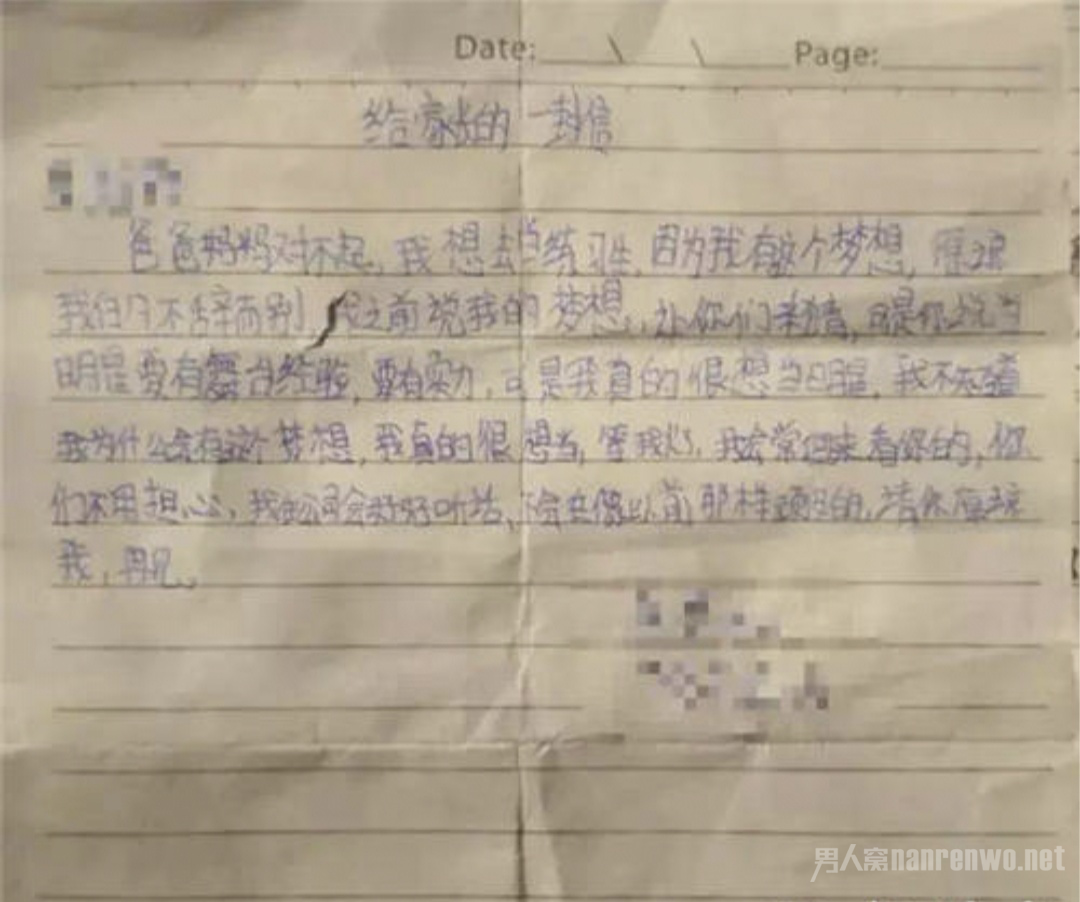 Date: \ \ Page:
给家长的一封信
爸爸妈妈对不起,我想去当练习生,因为我有这个梦想,原谅
我的不辞而别,我之前说我的梦想,让你们来猜,可是你说当
明星要有舞台经验,要有实力,可是我真的很想当明星,我不知道
我为什么会有这个梦想,我真的很想当,等我火,我会常回来看你的,你
们不用担心,我在公司会好好听话,不会在像以前那样顽强的,请你原谅
我,再见、
男人窝nanrenwo.net